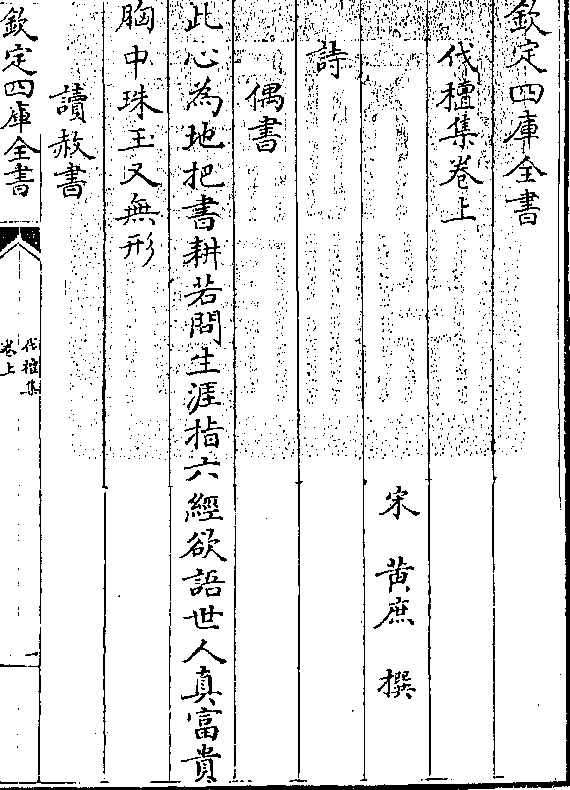 欽定四庫全書
伐檀集卷上
宋 黃庶 撰
詩
偶書
此心為地把書耕若問生涯指六經欲語世人真富貴
胸中珠玉又無形
讀赦書
欽定四庫全書
伐檀集
卷上